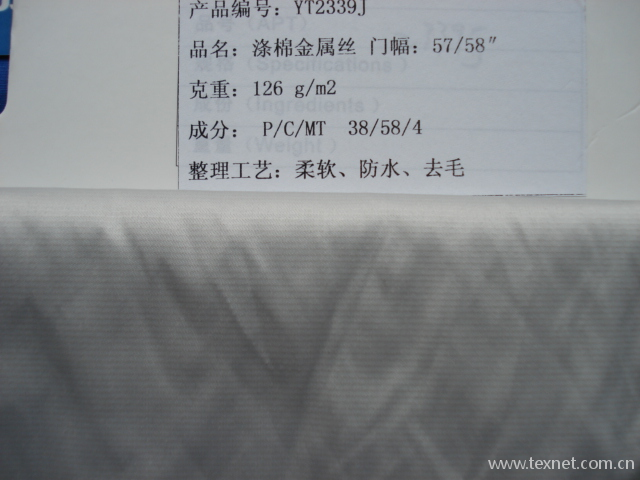 产品编号: YT2339J
品名: 涤棉金属丝 门幅: 57/58″
克重: 126 g/m2
成分: P/C/MT 38/58/4
整理工艺: 柔软、防水、去毛
www.texnet.com.cn